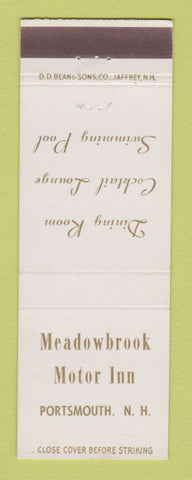 D.D. BEAN & SONS, CO., JAFFREY, N.H.
Dining Room
Cocktail Lounge
Swimming Pool
Meadowbrook
Motor Inn
PORTSMOUTH, N. H.
CLOSE COVER BEFORE STRIKING